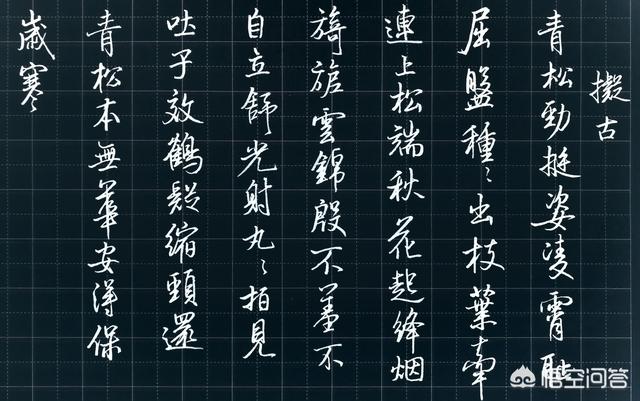 擬古
青松勁挺姿凌霄恥
屈盤種〻出枝葉牽
連上松端秋花起絳烟
旖旎雲錦殷不羞不
自立舒光射丸〻柏見
吐子效鶴疑縮頸還
青松本無華安得保
歲寒
悟空问答